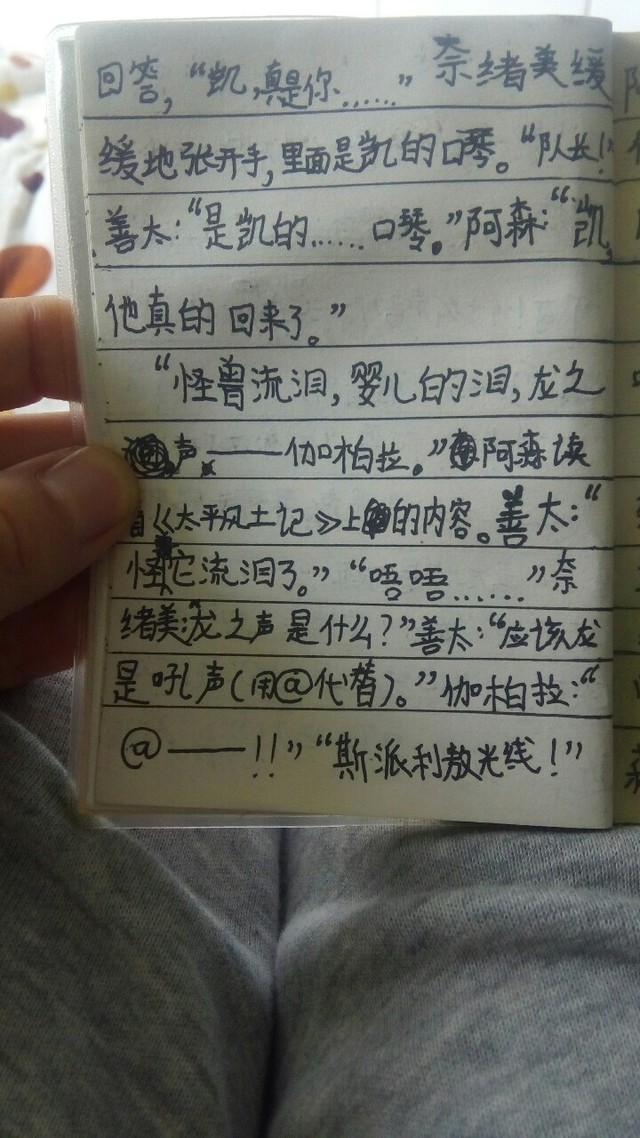 回答，“凯，真是你……”奈绪美缓
缓地张开手，里面是凯的口琴。“队长！”
善太：“是凯的……口琴。”阿森：“凯，
他真的回来了。”
“怪兽流泪，婴儿的泪，龙之
声——伽柏拉。”阿森读
自《太平风土记》上的内容。善太：“
怪兽它流泪了。”“唔唔……”奈
绪美：“龙之声是什么？”善太：“应该龙
是吼声（用@代替）。”伽柏拉：“
@——！！”“斯派利敖光线！”